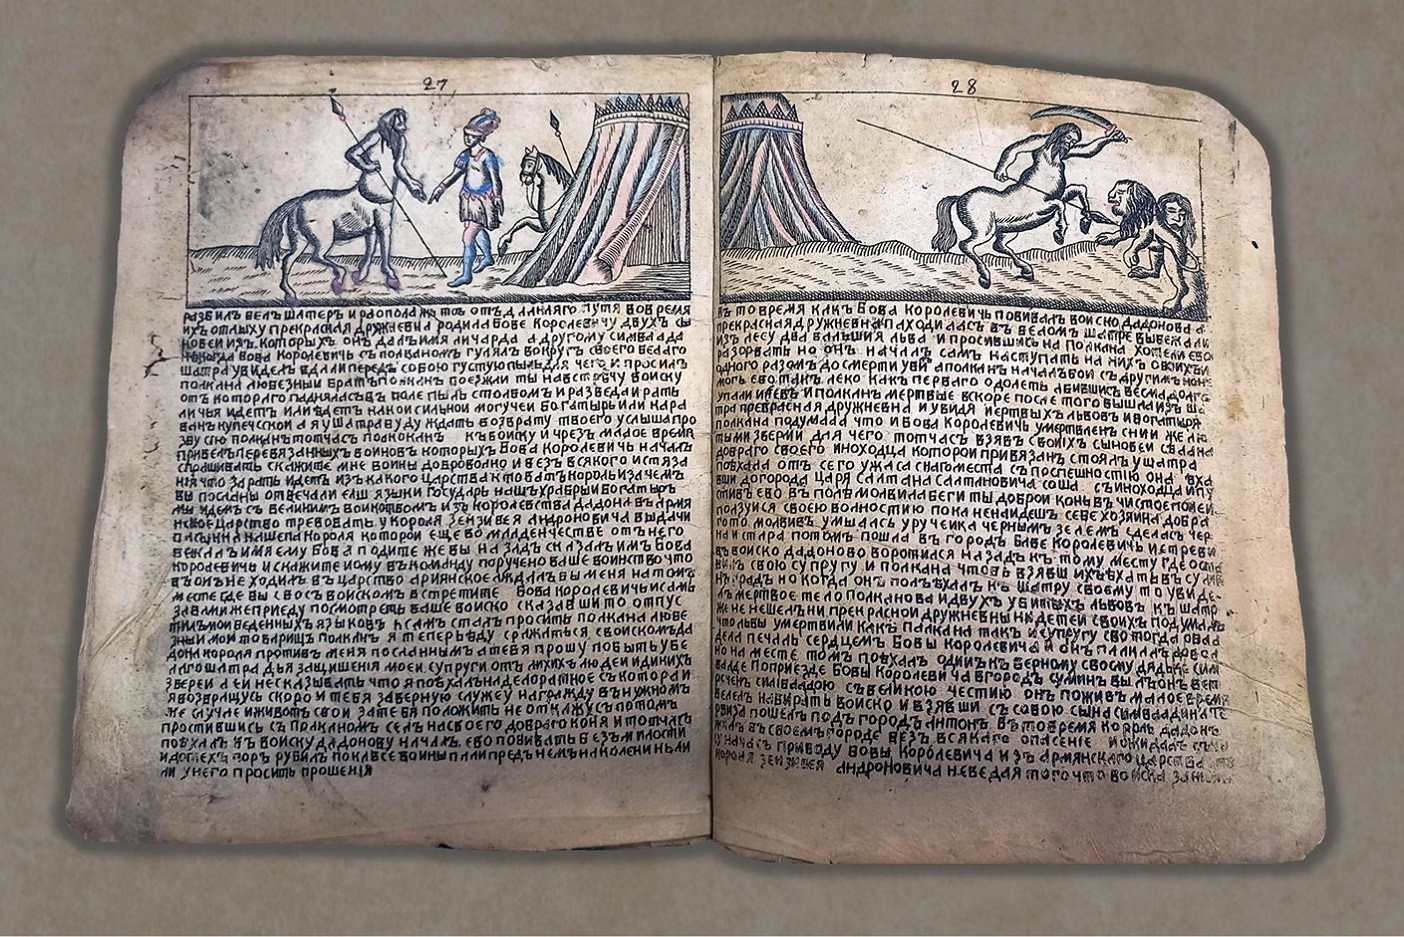 27
разбилъ велъ шатеръ и располажжотсе отъ далняго путя вовремя
ихъ отдыху прекрасная дружневна родила бове королевичу двухъ сы
новеи изъ которыхъ онъ далъ имя личарда а другому симбалда
некогда бова королевичь съ полканомъ гулялъ вокругъ своего белаго
шатра увиделъ вдали передъ собою густую пыль для чего и просилъ
полкана любезныи братъ полканъ поезжаи ты навстречу воиску
отъ котораго падняласъ въ поле пыль столбомъ и разведаи рать
ли чья идетъ или едетъ какои силнои могучеи богатырь или кара
ванъ купеческои а я у шатра буду ждать возврату твоего услыша про
збу сию полканъ тотчасъ полкоканъ къ воиску и чрезъ малое время
привелъ перевязанныхъ воиновъ которыхъ бова королевичь началъ
спрашивать скажите мне воины доброволно и безъ всякого истяза
ния что за рать идетъ изъ какого царства кто вашъ король и зачемъ
вы посланы отвечали ему языки государь нашъ храбрыи богатырь
мы идемъ съ великимъ воинствомъ изъ королевства дадона въ армя
нское царство требовать у короля зензивея андроновича выдачи
пасынка нашего короля которои еще во младенчестве отъ него
бежалъ имя ему бова подите же вы назадъ сказалъ имъ бова
королевичь и скажите йому въ команду поручено ваше воинство что
въ онъ не ходилъ въ царство ариянское ждалъ бы меня на томъ
месте где вы с воскъ воискомъ встретите бова королевичь и самъ
завами же приеду посмотреть ваше воиско сказавши то отпус
тилъ и оиведенныхъ языковъ и самъ сталъ просить полкана любе
зныи мои товарищъ полканъ я теперь еду сражаться с воискомъ да
дона короля противъ меня посланнымъ а тебя прошу побыть у бе
лаго шатра для защищения моеи супруги отъ лихихъ людеи и дикихъ
звереи а еи не сказывать что я поехалъ на дело ратное с котораи
я возвращусь скоро и тебя за верную службу награжду въ нужномъ
же случае и животъ свои за тебя положить не откажусъ потомъ
простившись съ полканомъ селъ на своего добраго коня и тотчасъ
поехалъ къ воиску дадонову началъ ево побивать безъ милости
и до техъ поръ рубилъ пока все воины пали предъ немъ на колени и нали
ли у него просить прошения
28
въ то время какъ бова королевичь побивалъ воиско дадонова а
прекрасная дружневна находиласъ въ беломъ шатре выбежали
изъ лесу два балшия льва и просившись на полкана хотели ево
разорвать но онъ началъ самъ наступать на нихъ овоихъ и
одного разомъ до смерти уби а полканъ началъ бои съ другимъ но не
могъ ево такъ легко какъ перваго одолеть а бившисъ весма долго
упали и левъ и полканъ мертвые вскоре после того вышла изъ ша
тра прекрасная дружневна и увидя мертвыхъ львовъ и богатыря
полкана подумала что и бова королевичь умертвленъ сими же лю
тыми зверми для чего тотчасъ взявъ своихъ сыновеи седлана
добраго своего иноходца которои привязанъ стоялъ у шатра
поехала отъ сего ужаснаго места съ поспешностию она въеха
вши до города царя салтана салтановича сошла съ иноходца и пу
стивъ ево въ поле молвила беги ты доброи конь въ чистое поле и
ползуися своею волностию пока ненаидешъ себе хозяина добра
гото молвивъ умылась у ручеика чернымъ зелемъ сделасъ чер
на и стара потомъ пошла въ городъ бове королевичь истребив
въ воиско дадоново воротился назадъ къ тому месту где оста
вилъ свою супругу и полкана чтобъ взявши ихъ ехать въ сумин
нъ градъ но когда онъ подъехалъ къ шатру своему то увиде
лъ мертвое тело полканова и двухъ убитыхъ львовъ къ шатр
же не нешелъ ни прекраснои дружневны ни детеи своихъ подумалъ
что львы умертвили какъ палкана такъ и супругу ево тогда овла
дела печаль сердцемъ бовы королевича и онъ плакалъ довол
но на месте томъ поехалъ одинъ къ верному своему дядьке сим
балде по приезде бовы королевича в городъ суминъ былъ онъ вст
речень симбалдою съ великою честию онъ поживъ малое время
велелъ набирать воиско и взявши съ собою сына симбалдина те
рвиза пошелъ подъ городъ антонъ въ то время король дадонъ
жилъ въ своемъ городе безъ всякаго опасение и ожидалъ съ
часъ приводу бовы королевича изъ армянскаго царства
короля зензивея андроновича неведая того что воиска